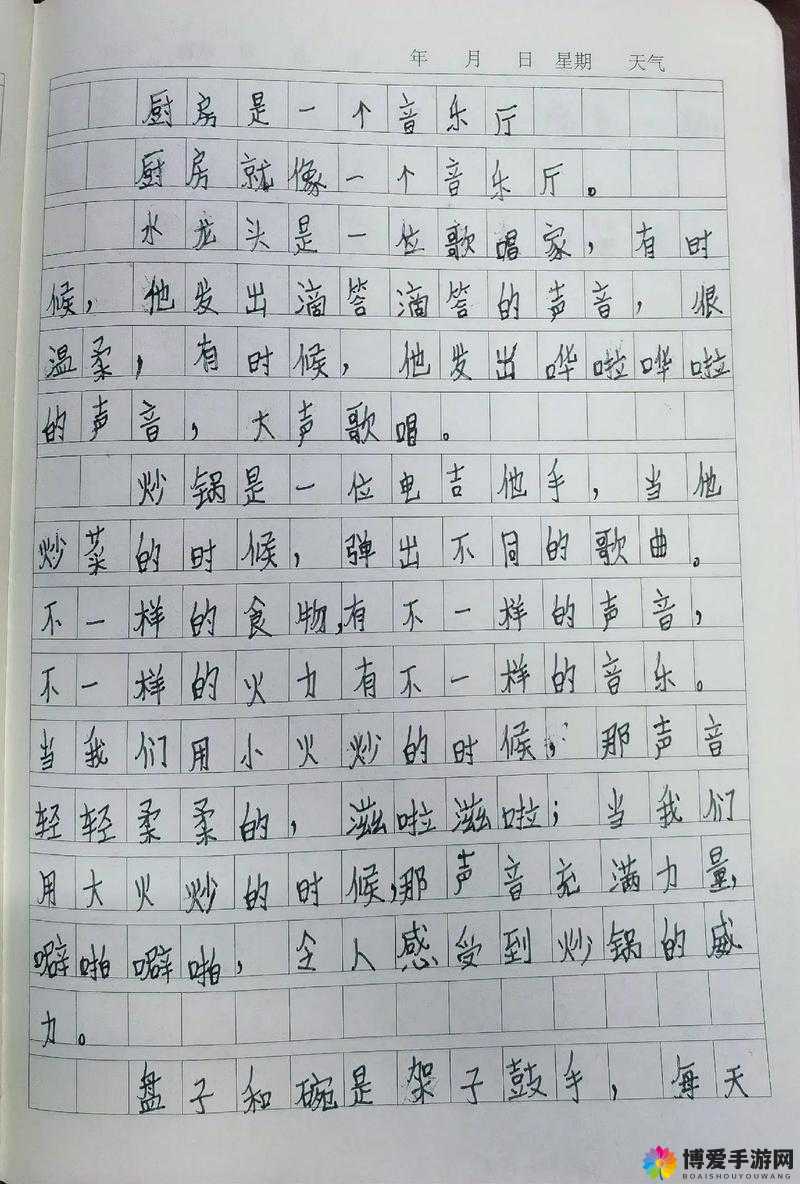 年 月 日 星期 天气
厨房是一个音乐厅
厨房就像一个音乐厅。
水龙头是一位歌唱家,有时
候,他发出滴答滴答的声音,很
温柔,有时候,他发出哗啦哗啦
的声音,大声歌唱。
炒锅是一位电吉他手,当他
炒菜的时候,弹出不同的歌曲。
不一样的食物,有不一样的声音,
不一样的火力有不一样的音乐。
当我们用小火炒的时候,那声音
轻轻柔柔的,滋啦滋啦;当我们
用大火炒的时候,那声音充满力量,
噼啪噼啪,令人感受到炒锅的威
力。
盘子和碗是架子鼓手,每天
博爱手游网
BOAISHOUYOUWANG